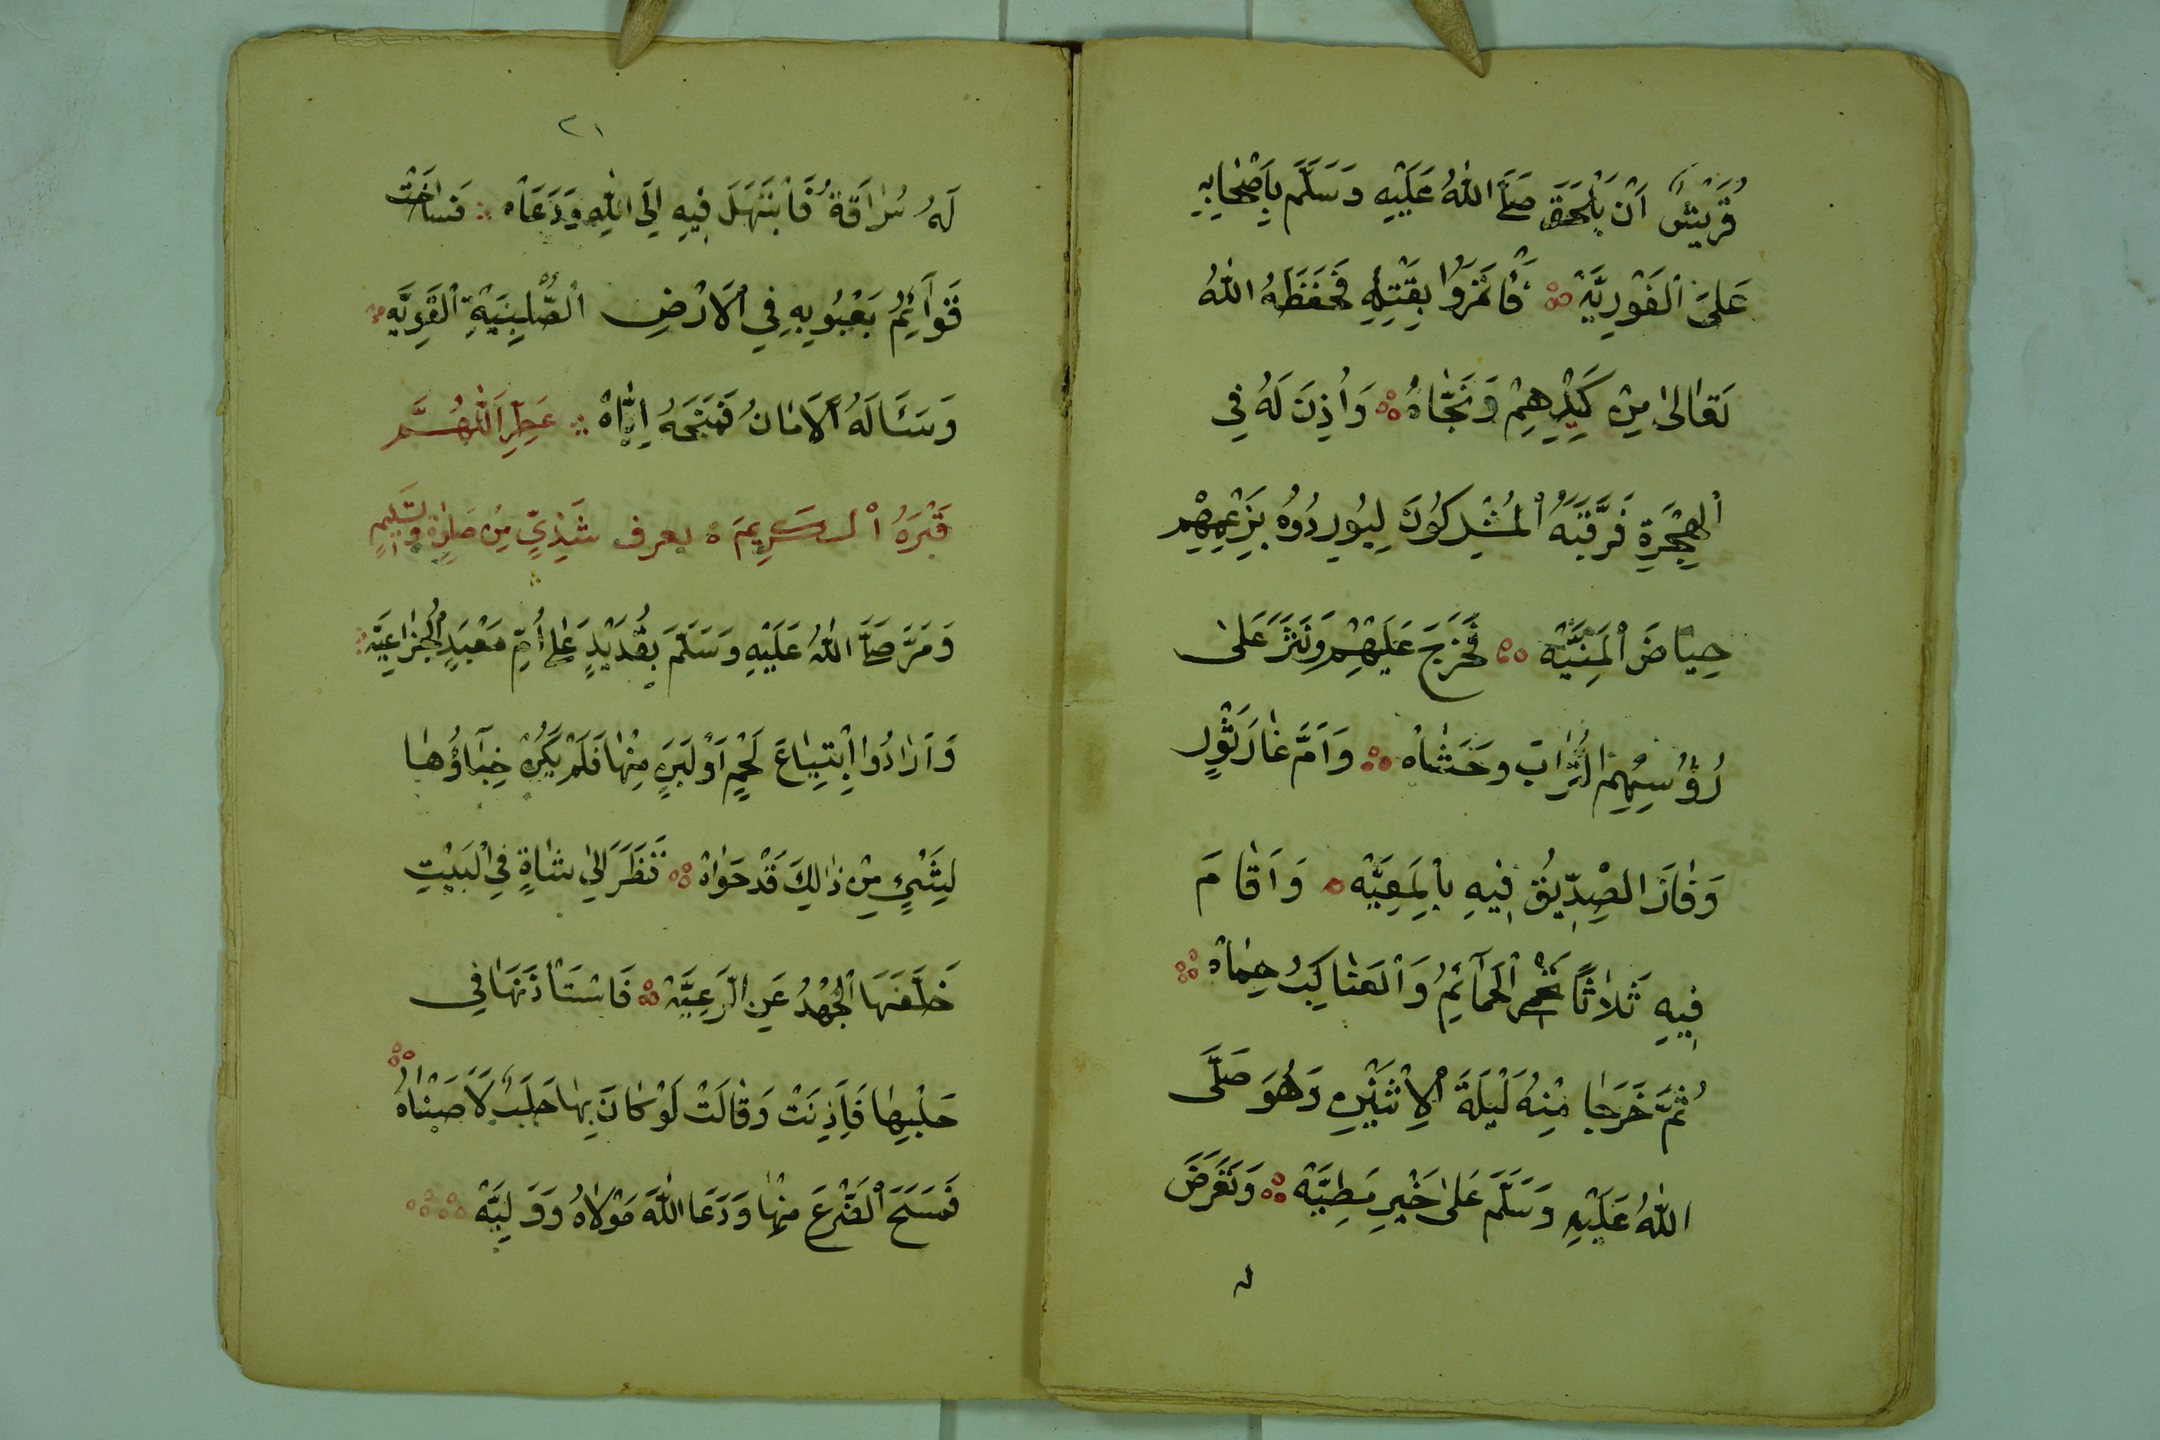 قُرَيْشٌ اَنْ يَلْحَقَ صَلَّى اللهُ عَلَيْهِ وَسَلَّم بِاَصْحَابِهِ
عَلىَ الْفَوْرِيَّهْ فَأْتَمَرُوا بِقَتْلِهِ فَحَفَظَهُ اللهُ
تَعَالىٰ مِنْ كَيْدِهِمْ وَنَجَّاهُ وَاُذِنَ لَهُ فِي
الْهِجْرَةِ فَرَقَّبَهُ الْمُشْرِكُونَ لِيُورِدُوهُ بِزَعْمِهِمْ
حِيَاضَ الْمَنِيَّهْ فَخَرَجَ عَلَيْهِمْ وَنَثَرَ عَلىٰ
رُؤُسِهِمُ التُّرَابَ وحَثَاهْ وَاَمَّ غَارَ ثَوْرٍ
وَفَازَ الصِّدِّيقُ فِيهِ بِالْمَعِيَّهْ وَاَقَامَ
فِيهِ ثَلَاثًا تَحْمِي الْحَمَآئِمُ وَالْعَنَاكِبُ حِمَاهْ
ثُمَّ خَرَجَا مِنْهُ لَيْلَةَ الْاِثْنَيْنِ وَهُوَ صَلَّى
اللهُ عَلَيْهِ وَسَلَّمَ عَلىٰ خَيْرِ مَطِيَّهْ وَتَعَرَّضَ
لـه
٢١
لَهُ سُرَاقَةُ فَابْتَهَلَ فِيهِ اِلَى اللهِ وَدَعَاهْ فَسَاخَتْ
قَوَآئِمُ يَعْبُوبِهِ فِي الْاَرْضِ الصُّلْبِيَّةِ الْقَوِيَّهْ
وَسَئَالَهُ الْاَمَانُ فَمَنَحَهُ اِيَّاهْ عَطِّرِ اللّٰهُمَّ
قَبْرَهُ الْكَرِيمَ ه بعرف شَذِيٍّ مِنْ صَلٰوةٍ وَتَسْلِيمٍ
وَمَرَّ صَلَّى اللهُ عَلَيْهِ وَسَلَّمَ بِقُدَيْدٍ عَلٰى أُمِّ مَعْبَدٍ الْخُزَاعِيَّهْ
وَاَرَادُوا اِبْتِيَاعَ لَحْمٍ اَوْ لَبَنٍ مِنْهَا فَلَمْ يَكُنْ خِبَآؤُهَا
لِشَيْئٍ مِنْ ذٰالِكَ قَدْحَوَاهْ فَنَظَرَ اِلىٰ شَاةٍ فِي الْبَيْتِ
خَلَّفَهَا الْجُهْدُ عَنِ الرَّعِيَّهْ فَاسْتَأْذَنَهَا فِي
حَلْبِهَا فَاَذِنَتْ وَقَالَتْ لَوْ كَانَ بِهَا حَلَبٌ لَاَصَبْنَاهُ
فَمَسَحَ الضَّرْعَ مِنْهَا وَدَعَا اللهَ مَوْلَاهُ وَوَلِيَّهْ